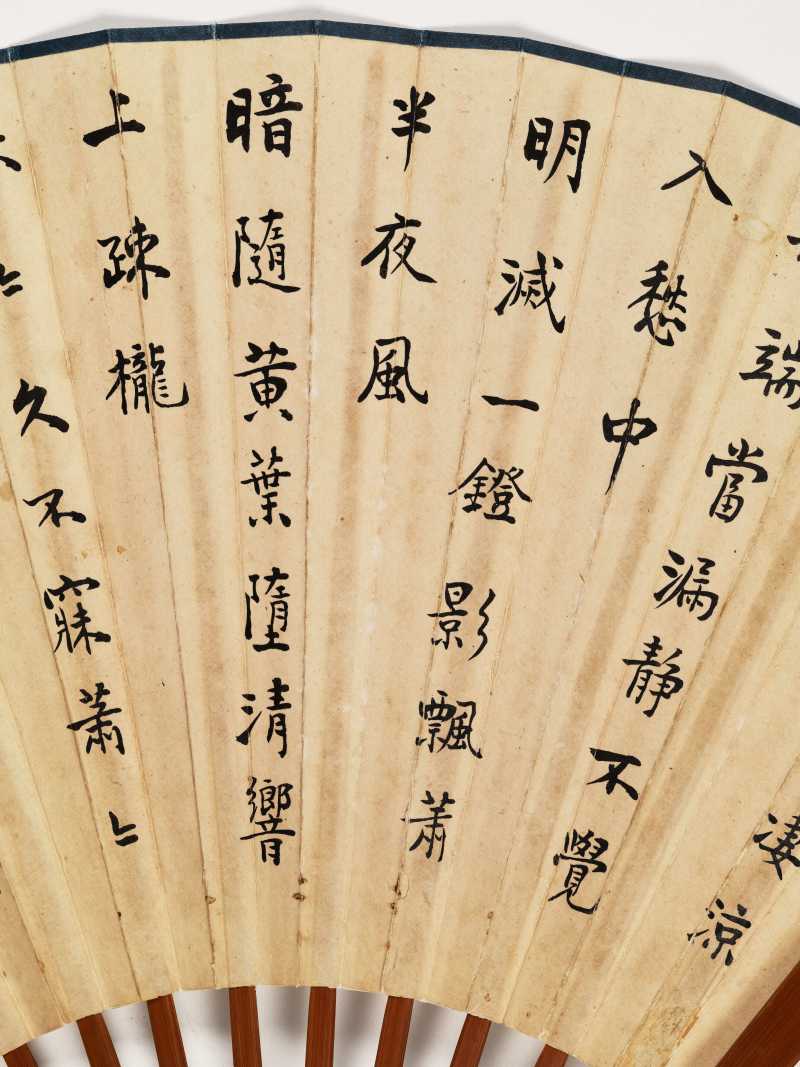 凄涼
端當漏静不覺
入愁中
明滅一鐙影飄蕭
半夜風
暗隨黄葉墮清響
上疎櫳
〻久不寐蕭〻